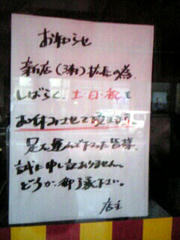 お知らせ
新店（ ）拡長の為
しばらく、土・日・祝を
お休みさせて頂きます。
足を運んで下さった皆様、
誠に申し訳ありません。
どうか、御了承下さい。
店主